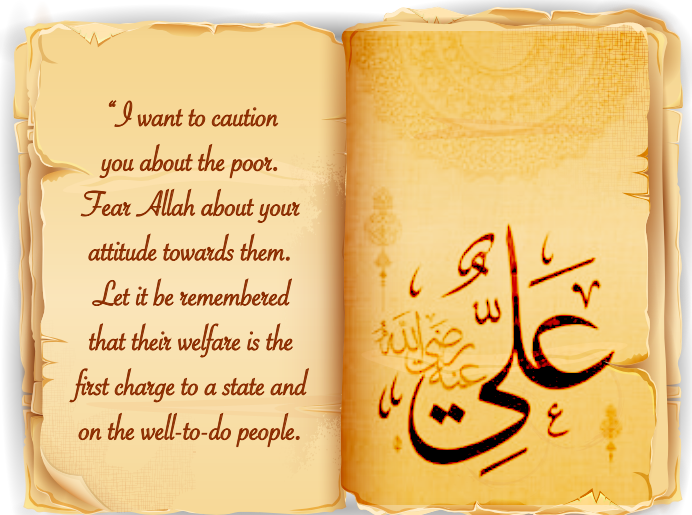 “I want to caution
you about the poor.
Fear Allah about your
attitude towards them.
Let it be remembered
that their welfare is the
first charge to a state and
on the well-to-do people.
عَلِيّ
رضي الله عنه